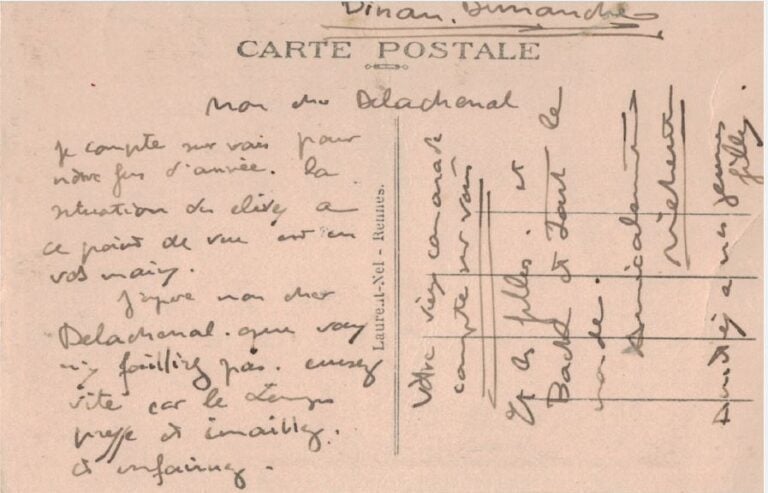 Dinan. Dimanche
CARTE POSTALE
Mon cher Delachenal
Je compte sur vous pour
notre fin d'année. La
situation des élèves a
ce point de vue est en
vos mains.
J'espère mon cher
Delachenal. que vous
n'y faillirez pas.
vite car le temps
presse et
et
Laurent-Nel - Rennes.
Votre vieux camarade
compte sur vous
Et les filles. et
Bach et tout le
monde.
Amicalement
Amitiés a mes jeunes
filles.